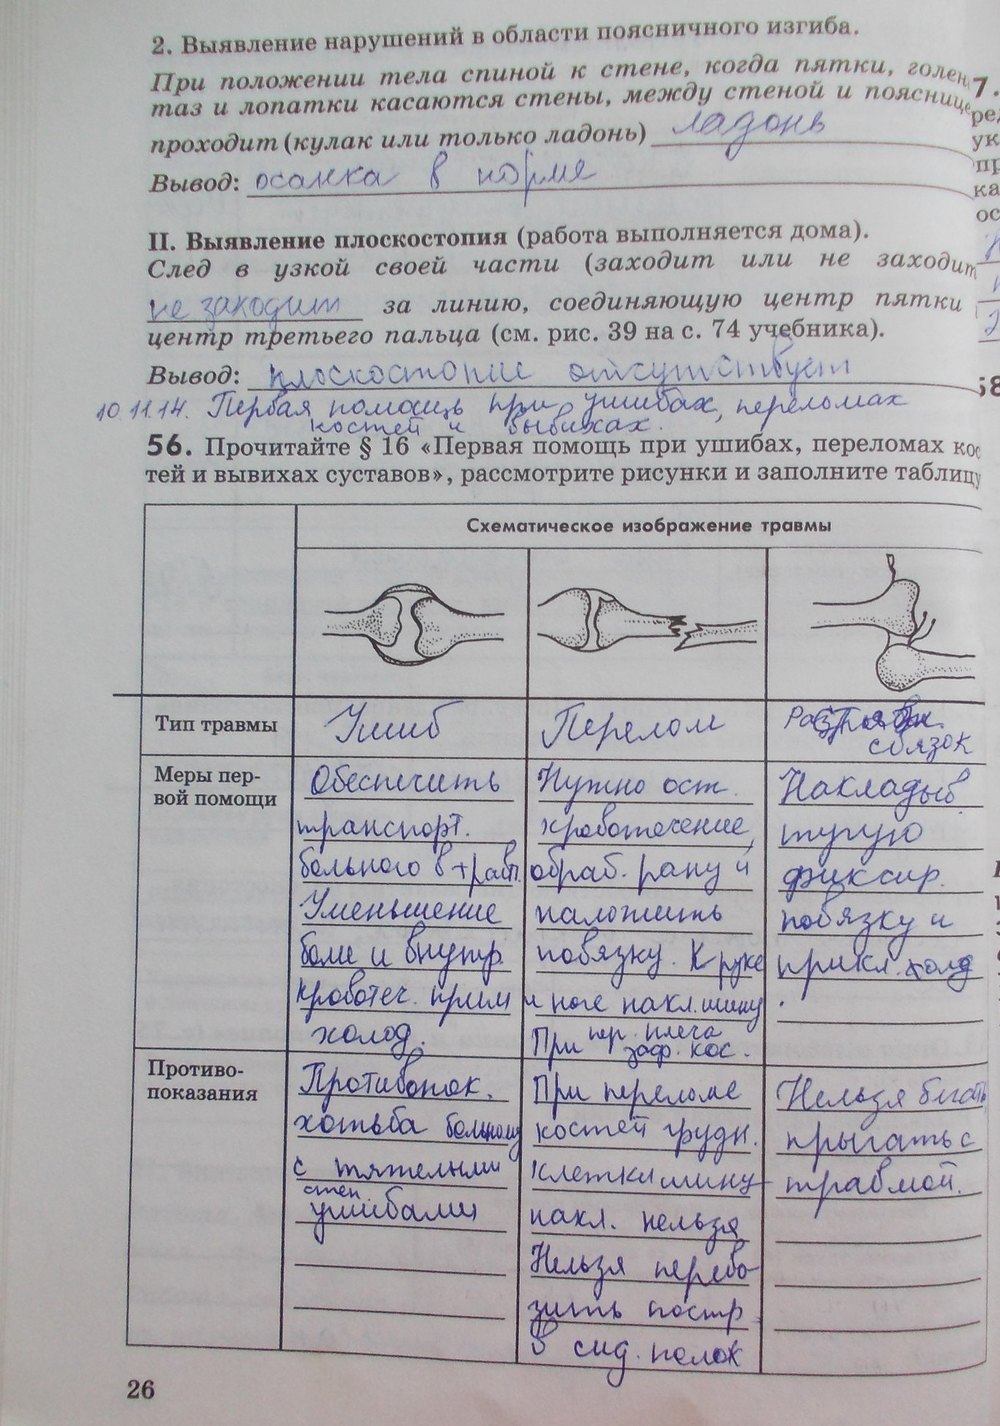 2. Выявление нарушений в области поясничного изгиба.
При положении тела спиной к стене, когда пятки, голени
таз и лопатки касаются стены, между стеной и поясницей
проходит (кулак или только ладонь) ладонь
Вывод: осанка в норме
II. Выявление плоскостопия (работа выполняется дома).
След в узкой своей части (заходит или не заходит
не заходит за линию, соединяющую центр пятки
центр третьего пальца (см. рис. 39 на с. 74 учебника).
Вывод: плоскостопие отсутствует
10.11.14. Первая помощь при ушибах, переломах
костей и вывихах.
56. Прочитайте § 16 «Первая помощь при ушибах, переломах кос
тей и вывихах суставов», рассмотрите рисунки и заполните таблицу
Схематическое изображение травмы
Тип травмы
Ушиб
Перелом
связок
Меры пер-
вой помощи
Обеспечить
транспорт.
больного в травп.
Уменьшение
боли и внутр.
кровотеч. прим
холод.
Нужно ост.
кровотечение,
обраб. рану и
наложить
повязку. К руке
и ноге накл. шину
При пер. плеча
заф. кос.
Накладыв.
тугую
фиксир.
повязку и
прикл. холд
.
Противо-
показания
Противопок.
хотьба больному
с тяжелыми
степ.
ушибами
При переломе
костей грудн.
клетки шину
накл. нельзя
Нельзя перево-
зить постр.
в сид. полож
Нельзя бегать
прыгать с
травмой.
26
7.
ред
ук
пр
ка
ос
58